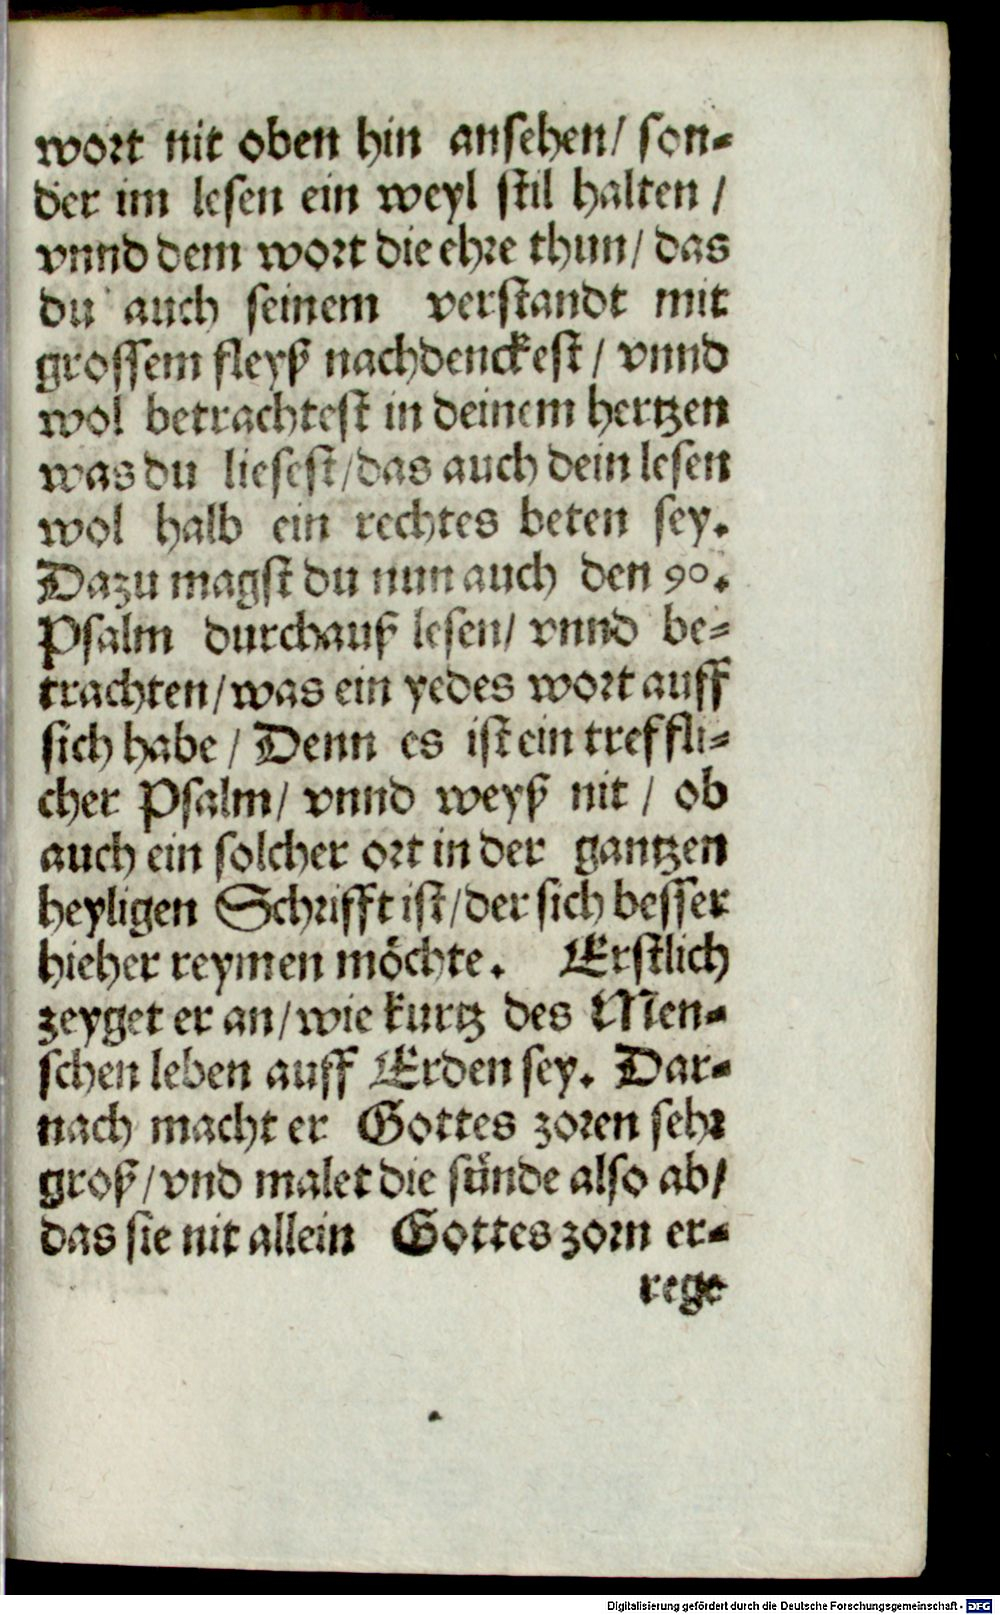 wort nit oben hin ansehen/ son-
der im lesen ein weyl stil halten /
vnnd dem wort die ehre thun/ das
du auch seinem verstandt mit
grossem fleyß nachdenckest / vnnd
wol betrachtest in deinem hertzen
was du liesest/das auch dein lesen
wol halb ein rechtes beten sey.
Dazu magst du nun auch den 90.
Psalm durchauß lesen/ vnnd be-
trachten/was ein yedes wort auff
sich habe / Denn es ist ein treffli-
cher Psalm/ vnnd weyß nit / ob
auch ein solcher ort in der gantzen
heyligen Schrifft ist/der sich besser
hieher reymen möchte. Erstlich
zeyget er an/wie kurtz des Men-
schen leben auff Erden sey. Dar-
nach macht er Gottes zoren sehr
groß/vnd malet die sünde also ab/
das sie nit allein Gottes zorn er-
rege
Digitalisierung gefördert durch die Deutsche Forschungsgemeinschaft - DFG